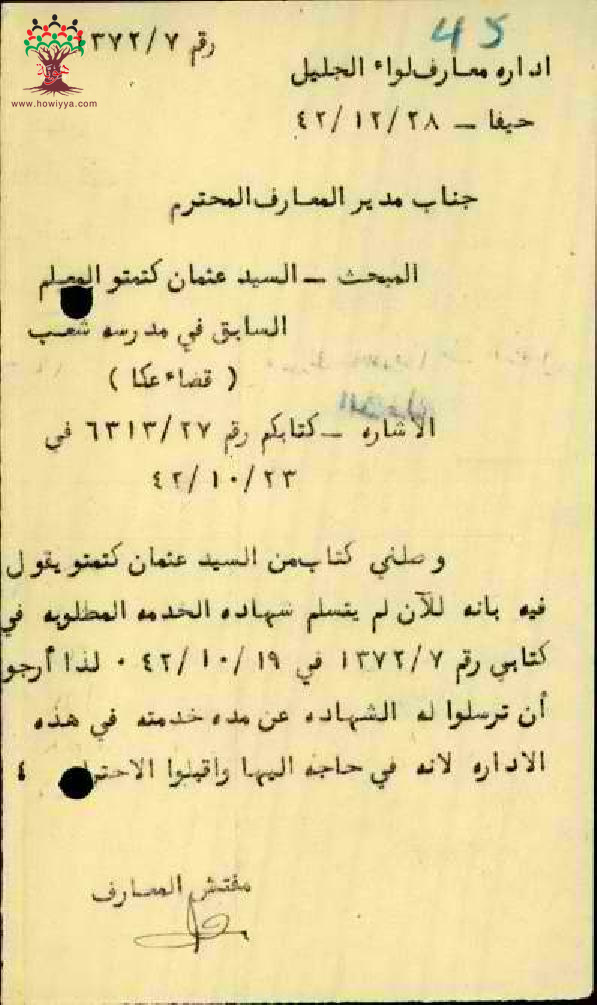 45
رقم ١٣٧٢/٧
www.howiyya.com
اداره معارف لواء الجليل
حيفا - ٤٢/١٢/٢٨
جناب مدير المعارف المحترم
المبحث - السيد عثمان كتمتو المعلم
السابق في مدرسه شعب
( قضاء عكا )
الاشاره - كتابكم رقم ٦٣١٣/٢٧ في
٤٢/١٠/٢٣
وصلني كتاب من السيد عثمان كتمتو يقول
فيه بانه للآن لم يتسلم شهاده الخدمه المطلوبه في
كتابي رقم ١٣٧٢/٧ في ٤٢/١٠/١٩ ٠ لذا أرجو
أن ترسلوا له الشهاده عن مده خدمته في هذه
الاداره لانه في حاجه اليها واقبلوا الاحترام ٤
مفتش المعارف